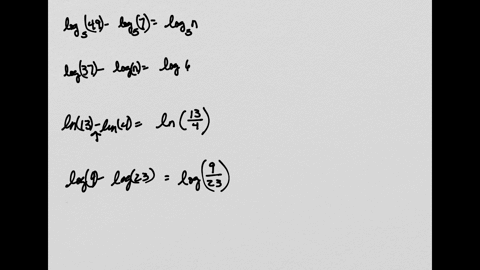 log₅(49) - log₅(7) = log₅ n
log(37) - log(n) = log 6
ln(13) - ln(4) = ln(13/4)
log(9 - log(23) = log(9/23)